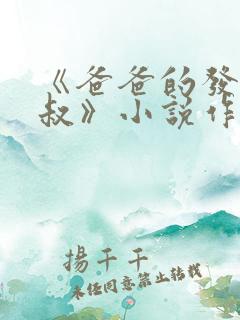 《爸爸的發
叔》小說作
揚千千
未任同意禁止转载